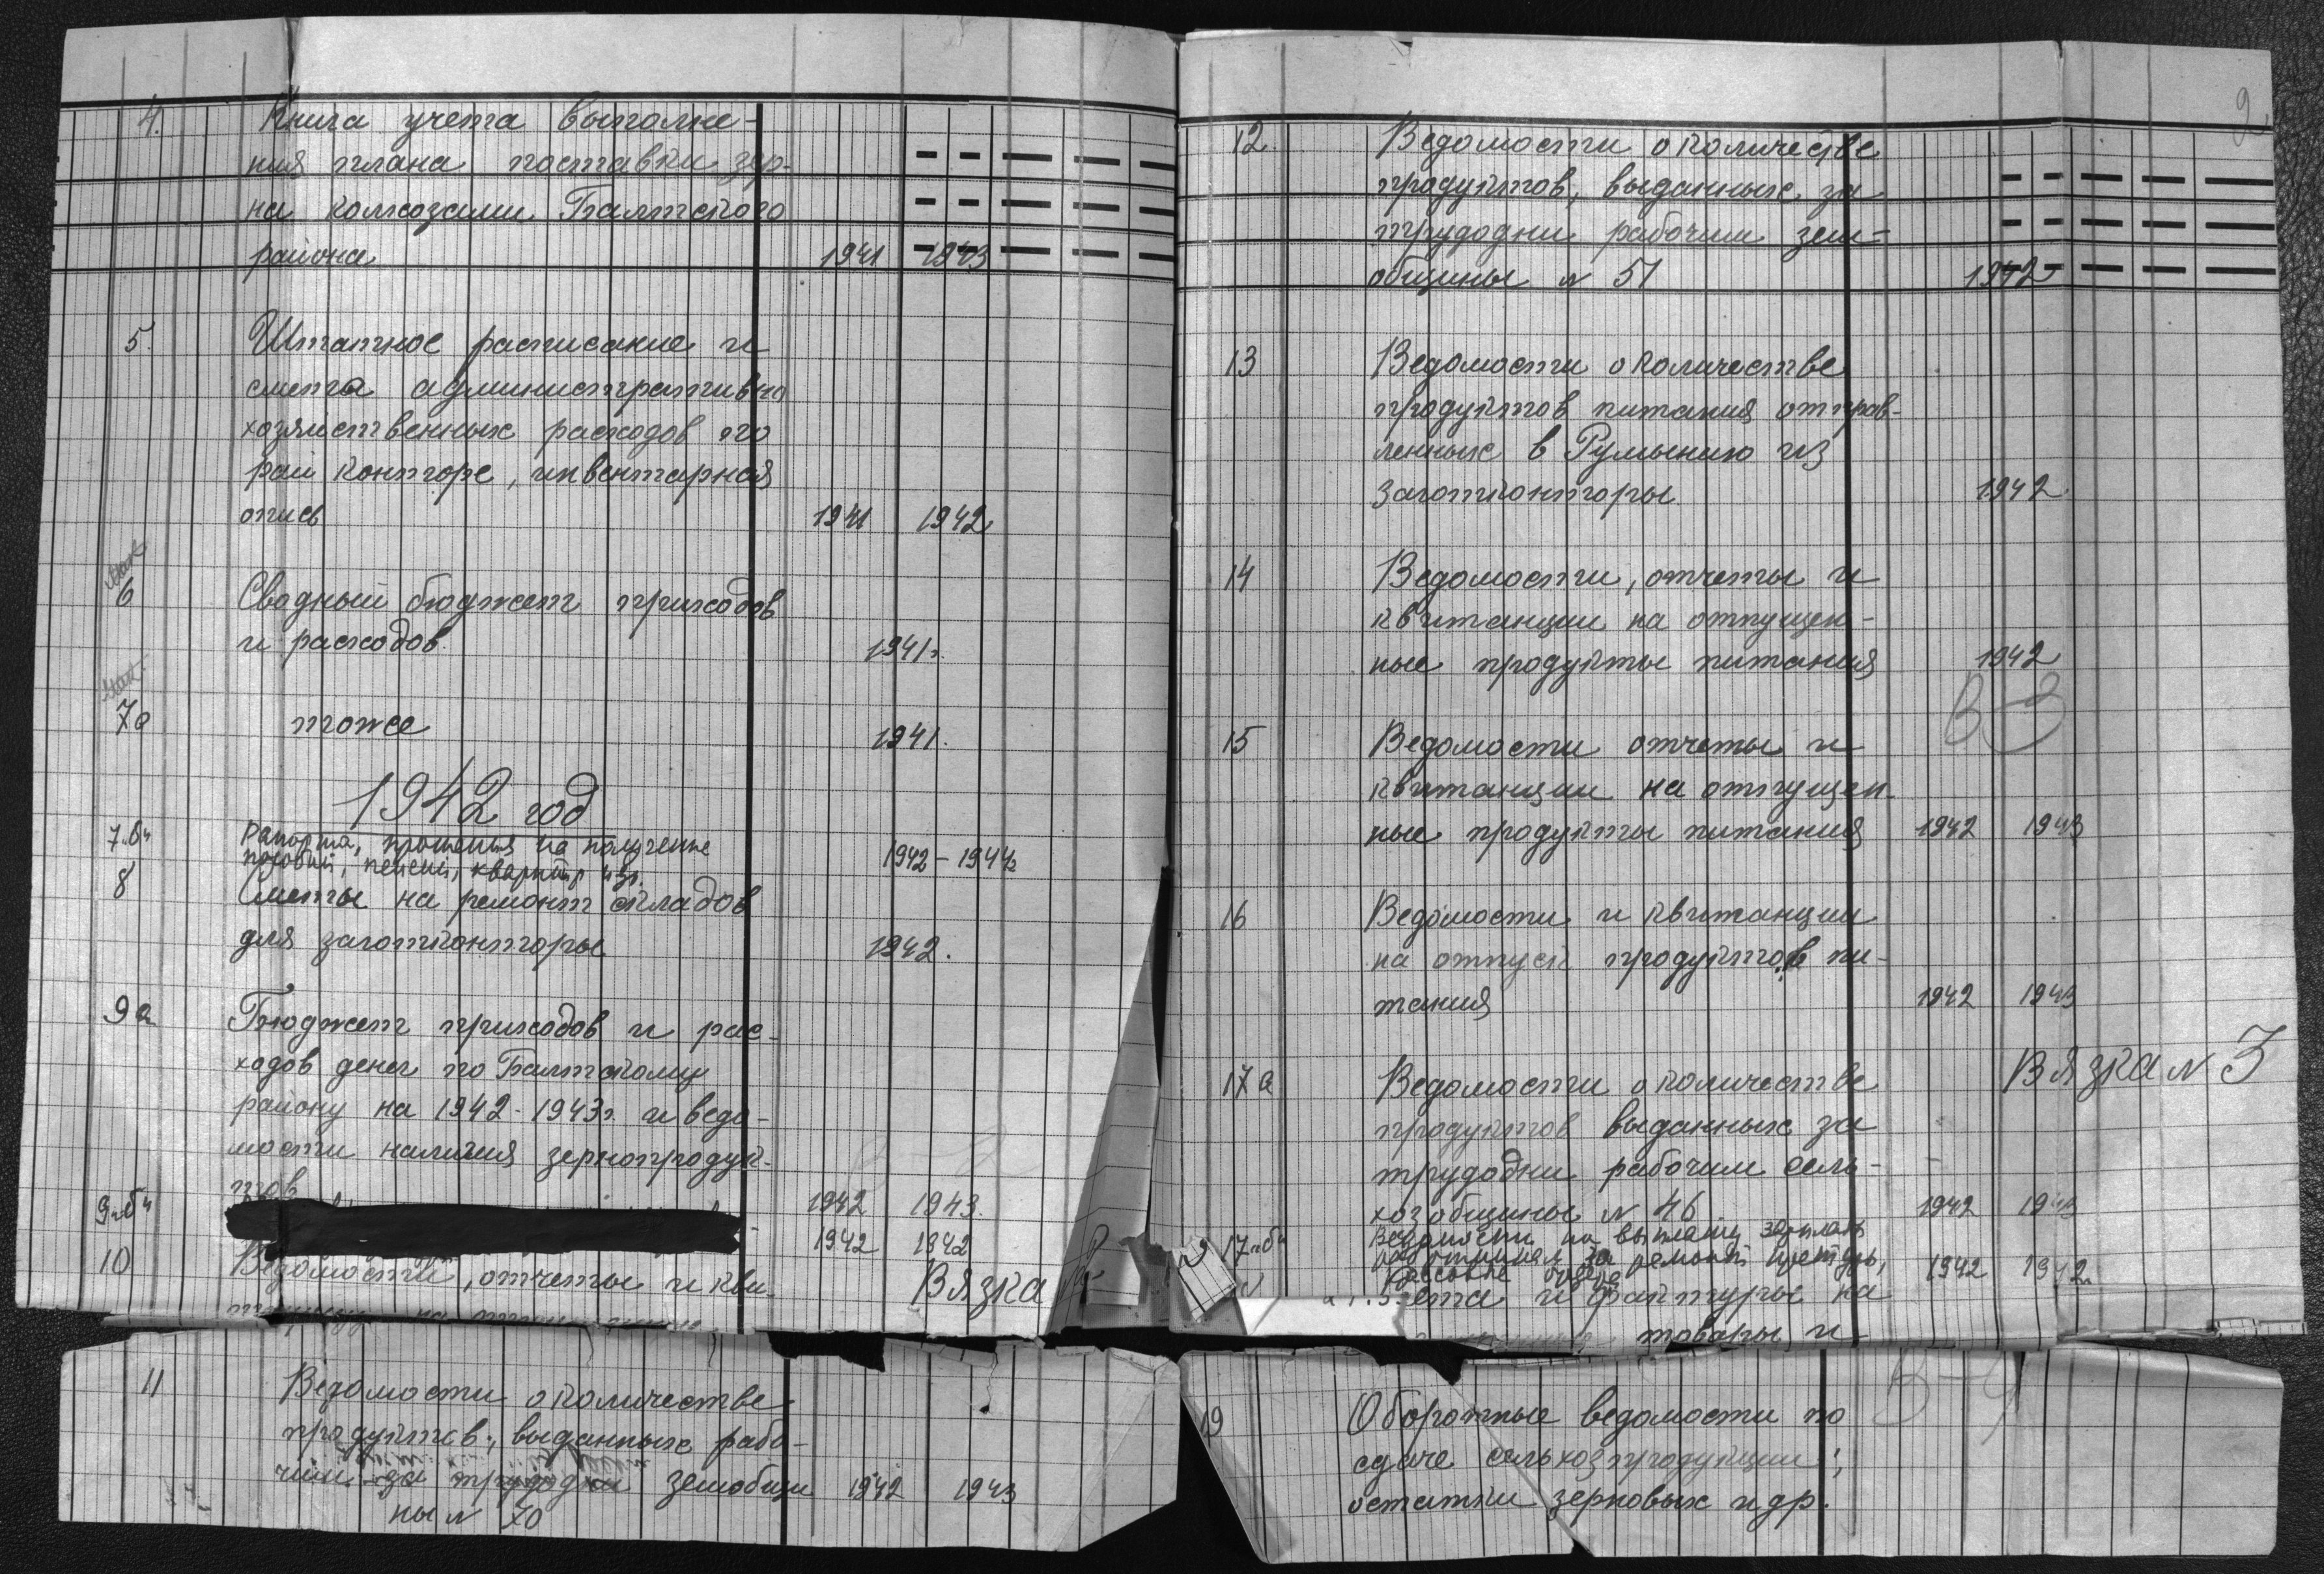 4. Книга учета выполне-
ния плана поставки зер-
на колхозами Балтского
района 1941 1943
5. Штатное расписание и
смета административно
хозяйственных расходов по
рай конторе, инвентарная
опись 1941 1942
6 Сводный бюджет приходов
и расходов. 1941г.
7а тоже 1941.
1942 год
7„б“ Рапорта, прошения на получение
пособий, пенсий, квартир и др. 1942-1944г
8 Сметы на ремонт складов
для заготконторы 1942.
9а Бюджет приходов и рас-
ходов денег по Балтскому
району на 1942-1943г. и ведо-
мости наличия зернопродук-
тов 1942 1943.
9„б“ 1942 1942
10 Ведомости, отчеты и кви-
Вязка
11 Ведомости о количестве
продуктов, выданных рабо-
чим за трудодни земобщи 1942 1943
ны № 70
9
12. Ведомости о количестве
продуктов, выданных за
трудодни рабочим зем-
общины № 51 1942
13 Ведомости о количестве
продуктов питания отправ-
ленных в Румынию из
Заготконторы. 1942.
14 Ведомости, отчеты и
квитанции на отпущен-
ные продукты питания 1942
В-3
15 Ведомости отчеты и
квитанции на отпущен
ные продукты питания 1942 1943
16 Ведомости и квитанции
на отпуск продуктов пи-
тания 1942 1943
Вязка № 3
17а Ведомости о количестве
продуктов выданных за
трудодни рабочим сель-
хоз общины № 46 1942 1943
17„б“ Ведомости на выплату зарплаты
работникам за ремонт
кассовые ордера 1942 1942г
и фактуры на
товары и
В-4
19 Оборотные ведомости по
сдаче сельхозпродукции;
остатки зерновых и др.